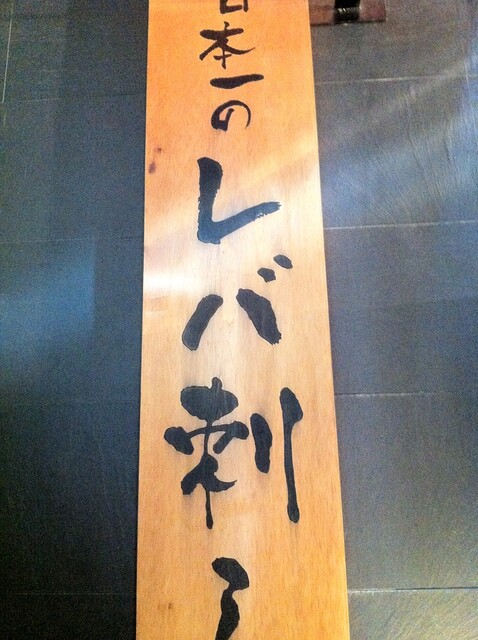 日本一のレバ刺